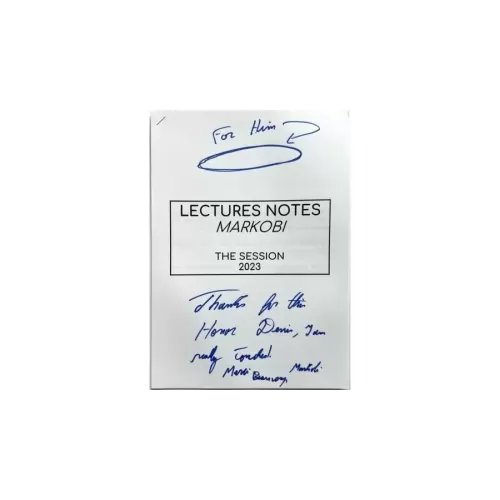 For Him
LECTURES NOTES
MARKOBI
THE SESSION
2023
Thanks for this
Honor Denis, I am
really touched.
Merci Beaucoup,
Markobi